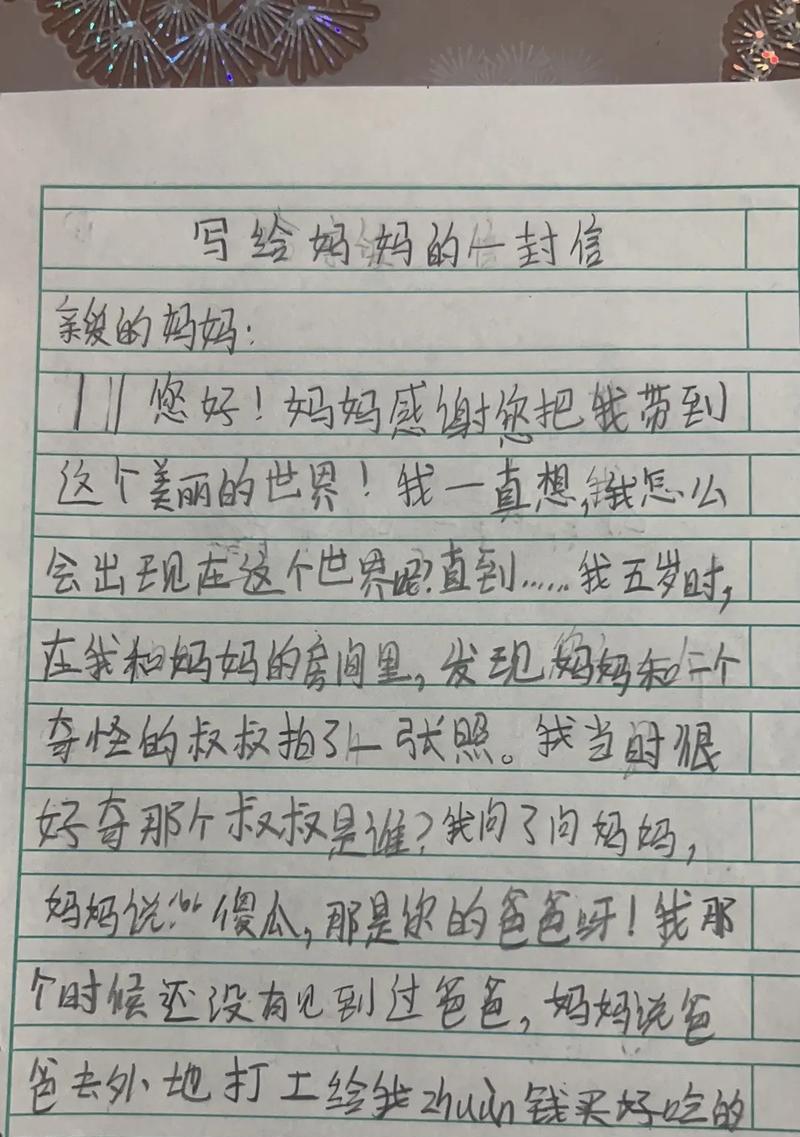 写给妈妈的一封信
亲爱的妈妈:
您好!妈妈感谢您把我带到
这个美丽的世界!我一直想,我怎么
会出现在这个世界呢?直到……我五岁时,
在我和妈妈的房间里,发现妈妈和一个
奇怪的叔叔拍了一张照。我当时很
好奇那个叔叔是谁?我问了问妈妈,
妈妈说:“傻瓜,那是你的爸爸呀!我那
个时候还没有见到过爸爸,妈妈说爸
爸去外地打工给我zhuàn钱买好吃的